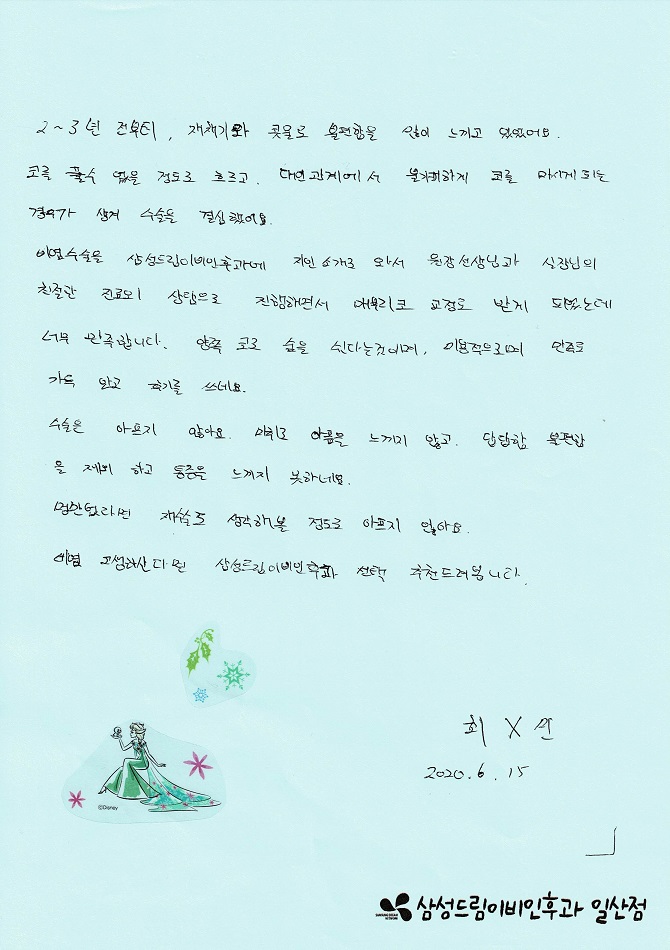 2~3년 전부터, 재채기와 콧물로 불편함을 많이 느끼고 있었어요.
코를 풀수 없을 정도로 흐르고, 대인관계에서 불가피하게 코를 마시게 되는
경우가 생겨 수술을 결심했어요.
비염수술을 삼성드림이비인후과에 지인소개로 와서 원장선생님과 실장님의
친절한 진료와 상담으로 진행하면서 매부리코 교정도 받게 되었는데
너무 만족합니다. 양쪽 코로 숨을 쉰다는것이며, 미용적으로며 만족도
가득 안고 후기를 쓰네요.
수술은 아프지 않아요. 마취로 아픔을 느끼지 않고. 답답함 불편함
을 제외 하고 통증을 느끼지 못하네요.
멍만없다면 재수술도 생각해볼 정도로 아프지 않아요.
비염 고생하신다면 삼성드림이비인후과 선택 추천드려봅니다.
최 X
2020.6.15
©Disney
SAMSUNG DREAM NETWORK
삼성드림이비인후과 일산점